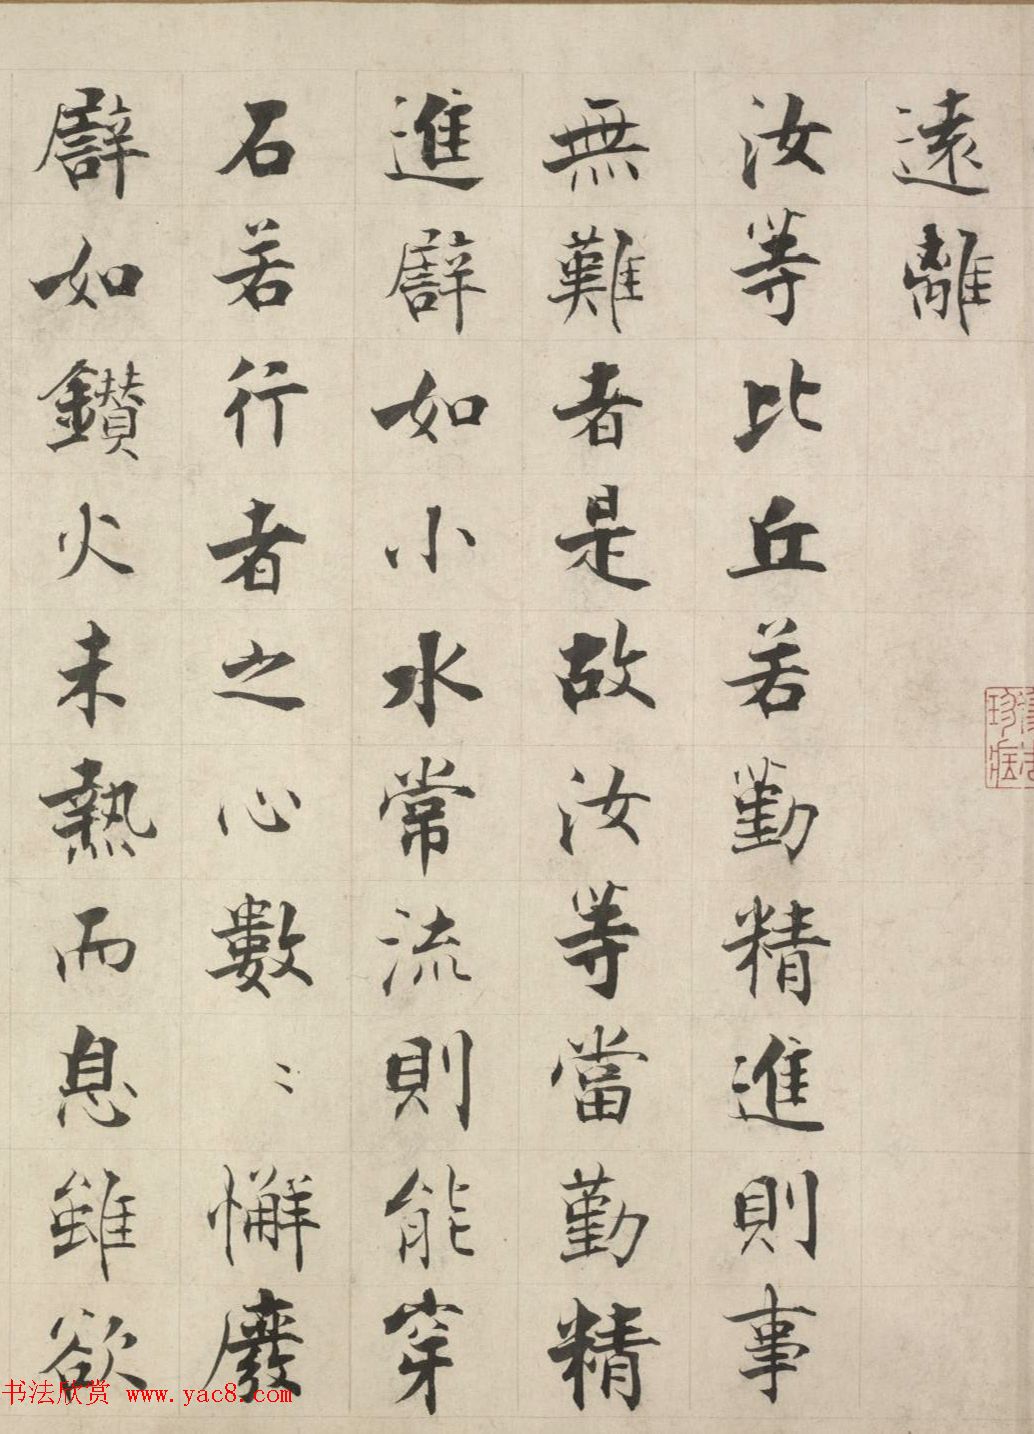 遠離
汝等比丘若勤精進則事
無難者是故汝等當勤精
進譬如小水常流則能穿
石若行者之心數〻懈廢
譬如鑽火未熱而息雖欲
珍藏
书法欣赏 www.yac8.com